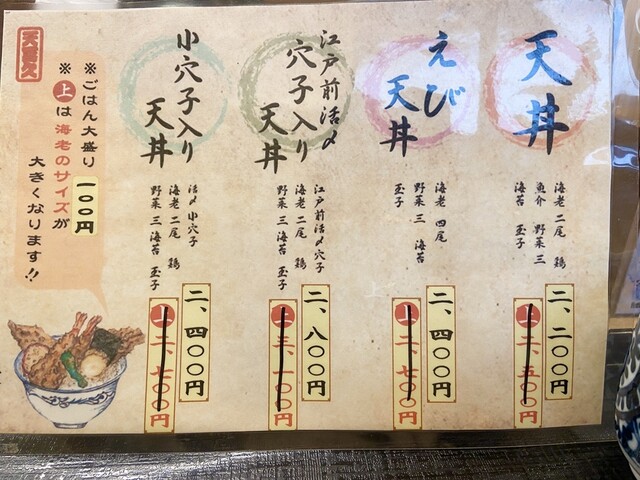 天丼
海老 二尾 鶏
魚介 野菜 三
海苔 玉子
二、二〇〇円
上 二、五〇〇円
えび
天丼
海老 四尾
野菜 三 海苔
玉子
二、四〇〇円
上 二、七〇〇円
江戸前活〆
穴子入り
天丼
江戸前活〆穴子
海老 二尾 鶏
野菜 三 海苔 玉子
二、八〇〇円
上 三、一〇〇円
小穴子入り
天丼
活〆小穴子
海老 二尾 鶏
野菜 三 海苔 玉子
二、四〇〇円
上 二、七〇〇円
※ごはん大盛り 一〇〇円
※上は海老のサイズが
大きくなります!!